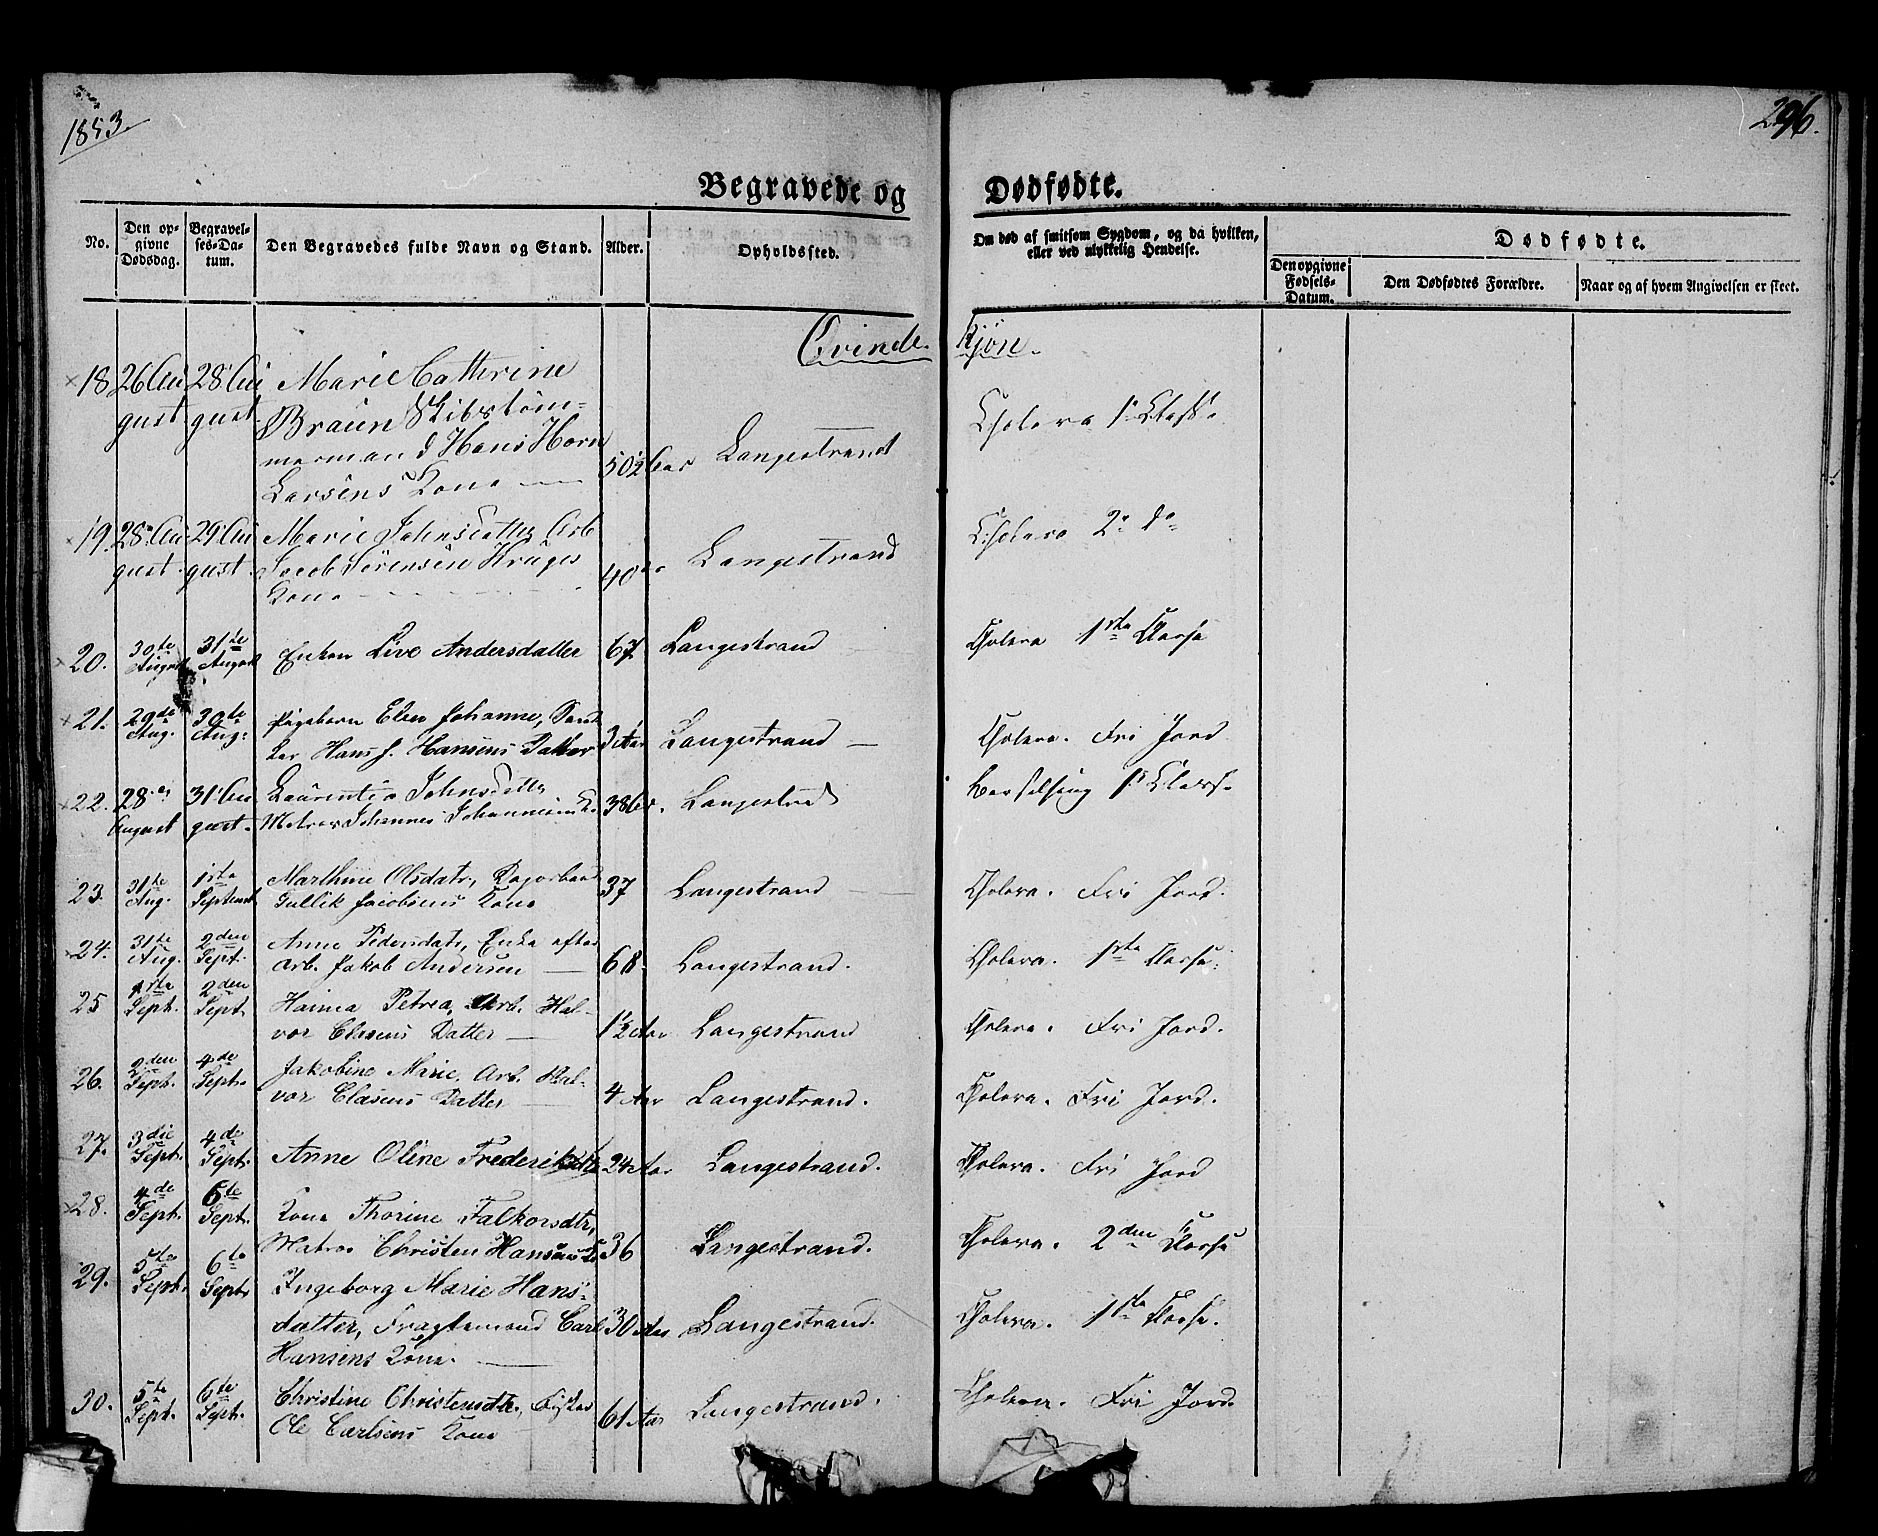 1853.
296.
Begravede og Dødfødte.
No.
Den op-
givne
Dødsdag.
Begravel-
ses-Da-
tum.
Den Begravedes fulde Navn og Stand.
Alder.
Opholdssted.
Om død af smitsom Sygdom, og da hvilken,
eller ved ulykkelig Hendelse.
Dødfødte.
Den opgivne
Fødsels-
Datum.
Den Dødfødtes Forældre.
Naar og af hvem Angivelsen er skeet.
Qvinde- Kjøn.
18 26 Au 28 Au Marie Cathrine
gust. gust. Braun Skibstøm-
mermand Hans Horn
Larsens Kone 50½ Aar Langestrand Cholera 1ste Classe
19. 28 Au 29 Au Marie Johnsdatter Arb
gust. gust. Jacob Sørensen Krüges
Kone 40 Langestrand Cholera 2. do
20. 30te August 31te August Enken Live Andersdatter 67 Langestrand Cholera 1ste Classe
21. 29de Aug. 30te Aug. Pigebarn Elen Johanne,
Hans J. Hansens Datter 3 Aar Langestrand Cholera. Fri Jord
22. 28 August 31 August Laurentia Johnsdatter
Matros Johannes Johannesens K. 38 Aar. Langestrand 1 Classe
23. 31te Aug. 1ste Septemb Marthine Olsdatr,
Gullik Jacobsens Kone 37 Langestrand Cholera. Fri Jord.
24. 31te Aug. 2den Sept. Anne Pedersdatr, Enke efter
Arb. Jakob Andersen 68. Langestrand. Cholera. 1ste Classe.
25 1ste Sept. 2den Sept. Petrea, Arb. Hal-
vor Clasens Datter 1½ Aar Langestrand Cholera. Fri Jord.
26. 2den Sept. 4de Sept. Jakobine Marie. Arb. Hal-
vor Clasens Datter 4 Aar Langestrand. Cholera. Fri Jord.
27. 3die Sept. 4de Sept. Anne Oline Frederiksdtr 24 Aar Langestrand. Cholera. Fri Jord
28. 4de Sept. 6te Sept. Kone Thorine Falkorsdtr,
Matros Christen Hansens K. 36 Langestrand. Cholera. 2den Classe
29. 5te Sept. 6te Sept. Ingeborg Marie Hans-
datter, Fragtemand Carl 30 Aar Langestrand. Cholera. 1ste Classe.
Hansens Kone.
30. 5te Sept. 6te Sept. Christine Christensdtr, Fisker
Ole Carlsens Kone 61 Aar Langestrand. Cholera. Fri Jord.